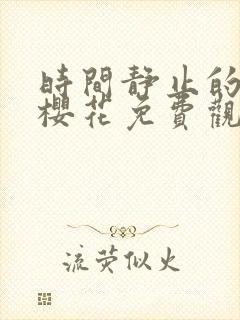 時間靜止的
櫻花免費觀
流荧似火